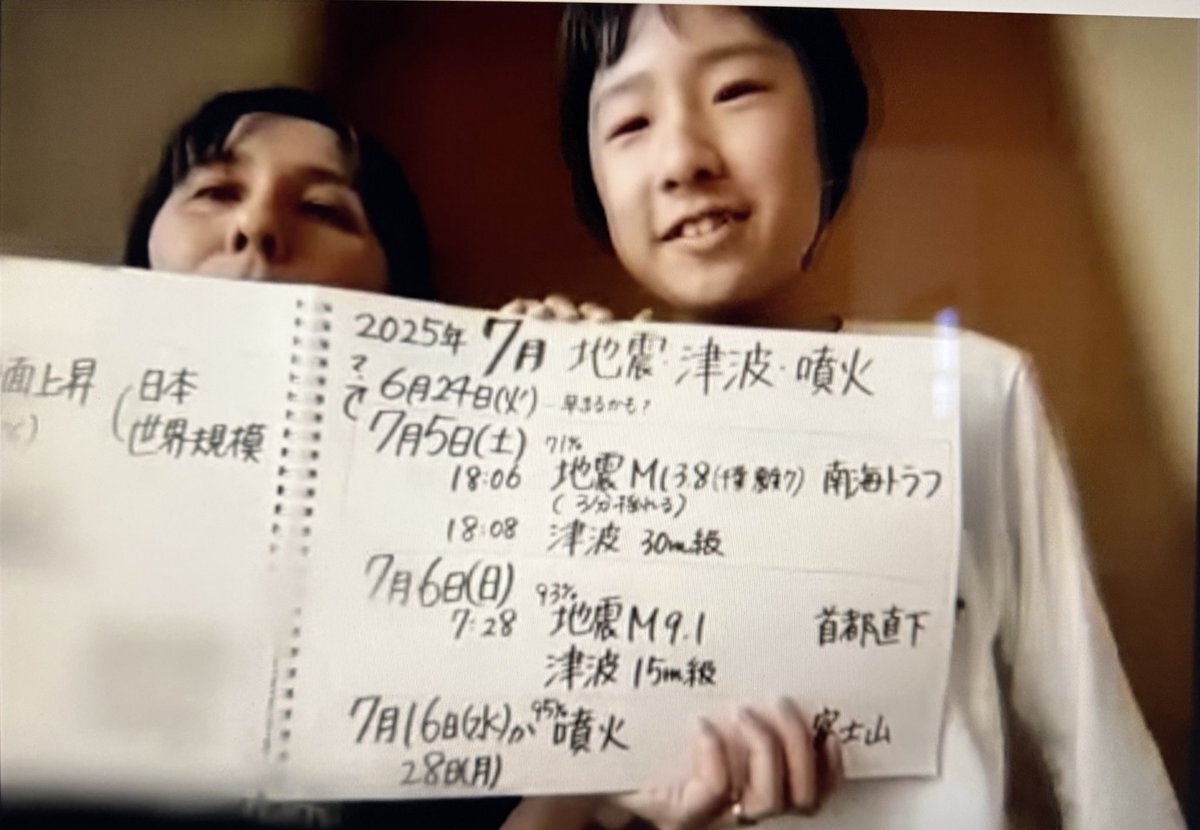 面上昇
日本
世界規模
2025年 7月 地震・津波・噴火
6月24日(火) 早まるかも?
まで
7月5日(土) 71%
18:06 地震 M13.8 南海トラフ
(3分揺れる)
18:08 津波 30m級
7月6日(日) 93%
7:28 地震 M9.1 首都直下
津波 15m級
7月16日(水)か 95% 噴火 富士山
28日(月)